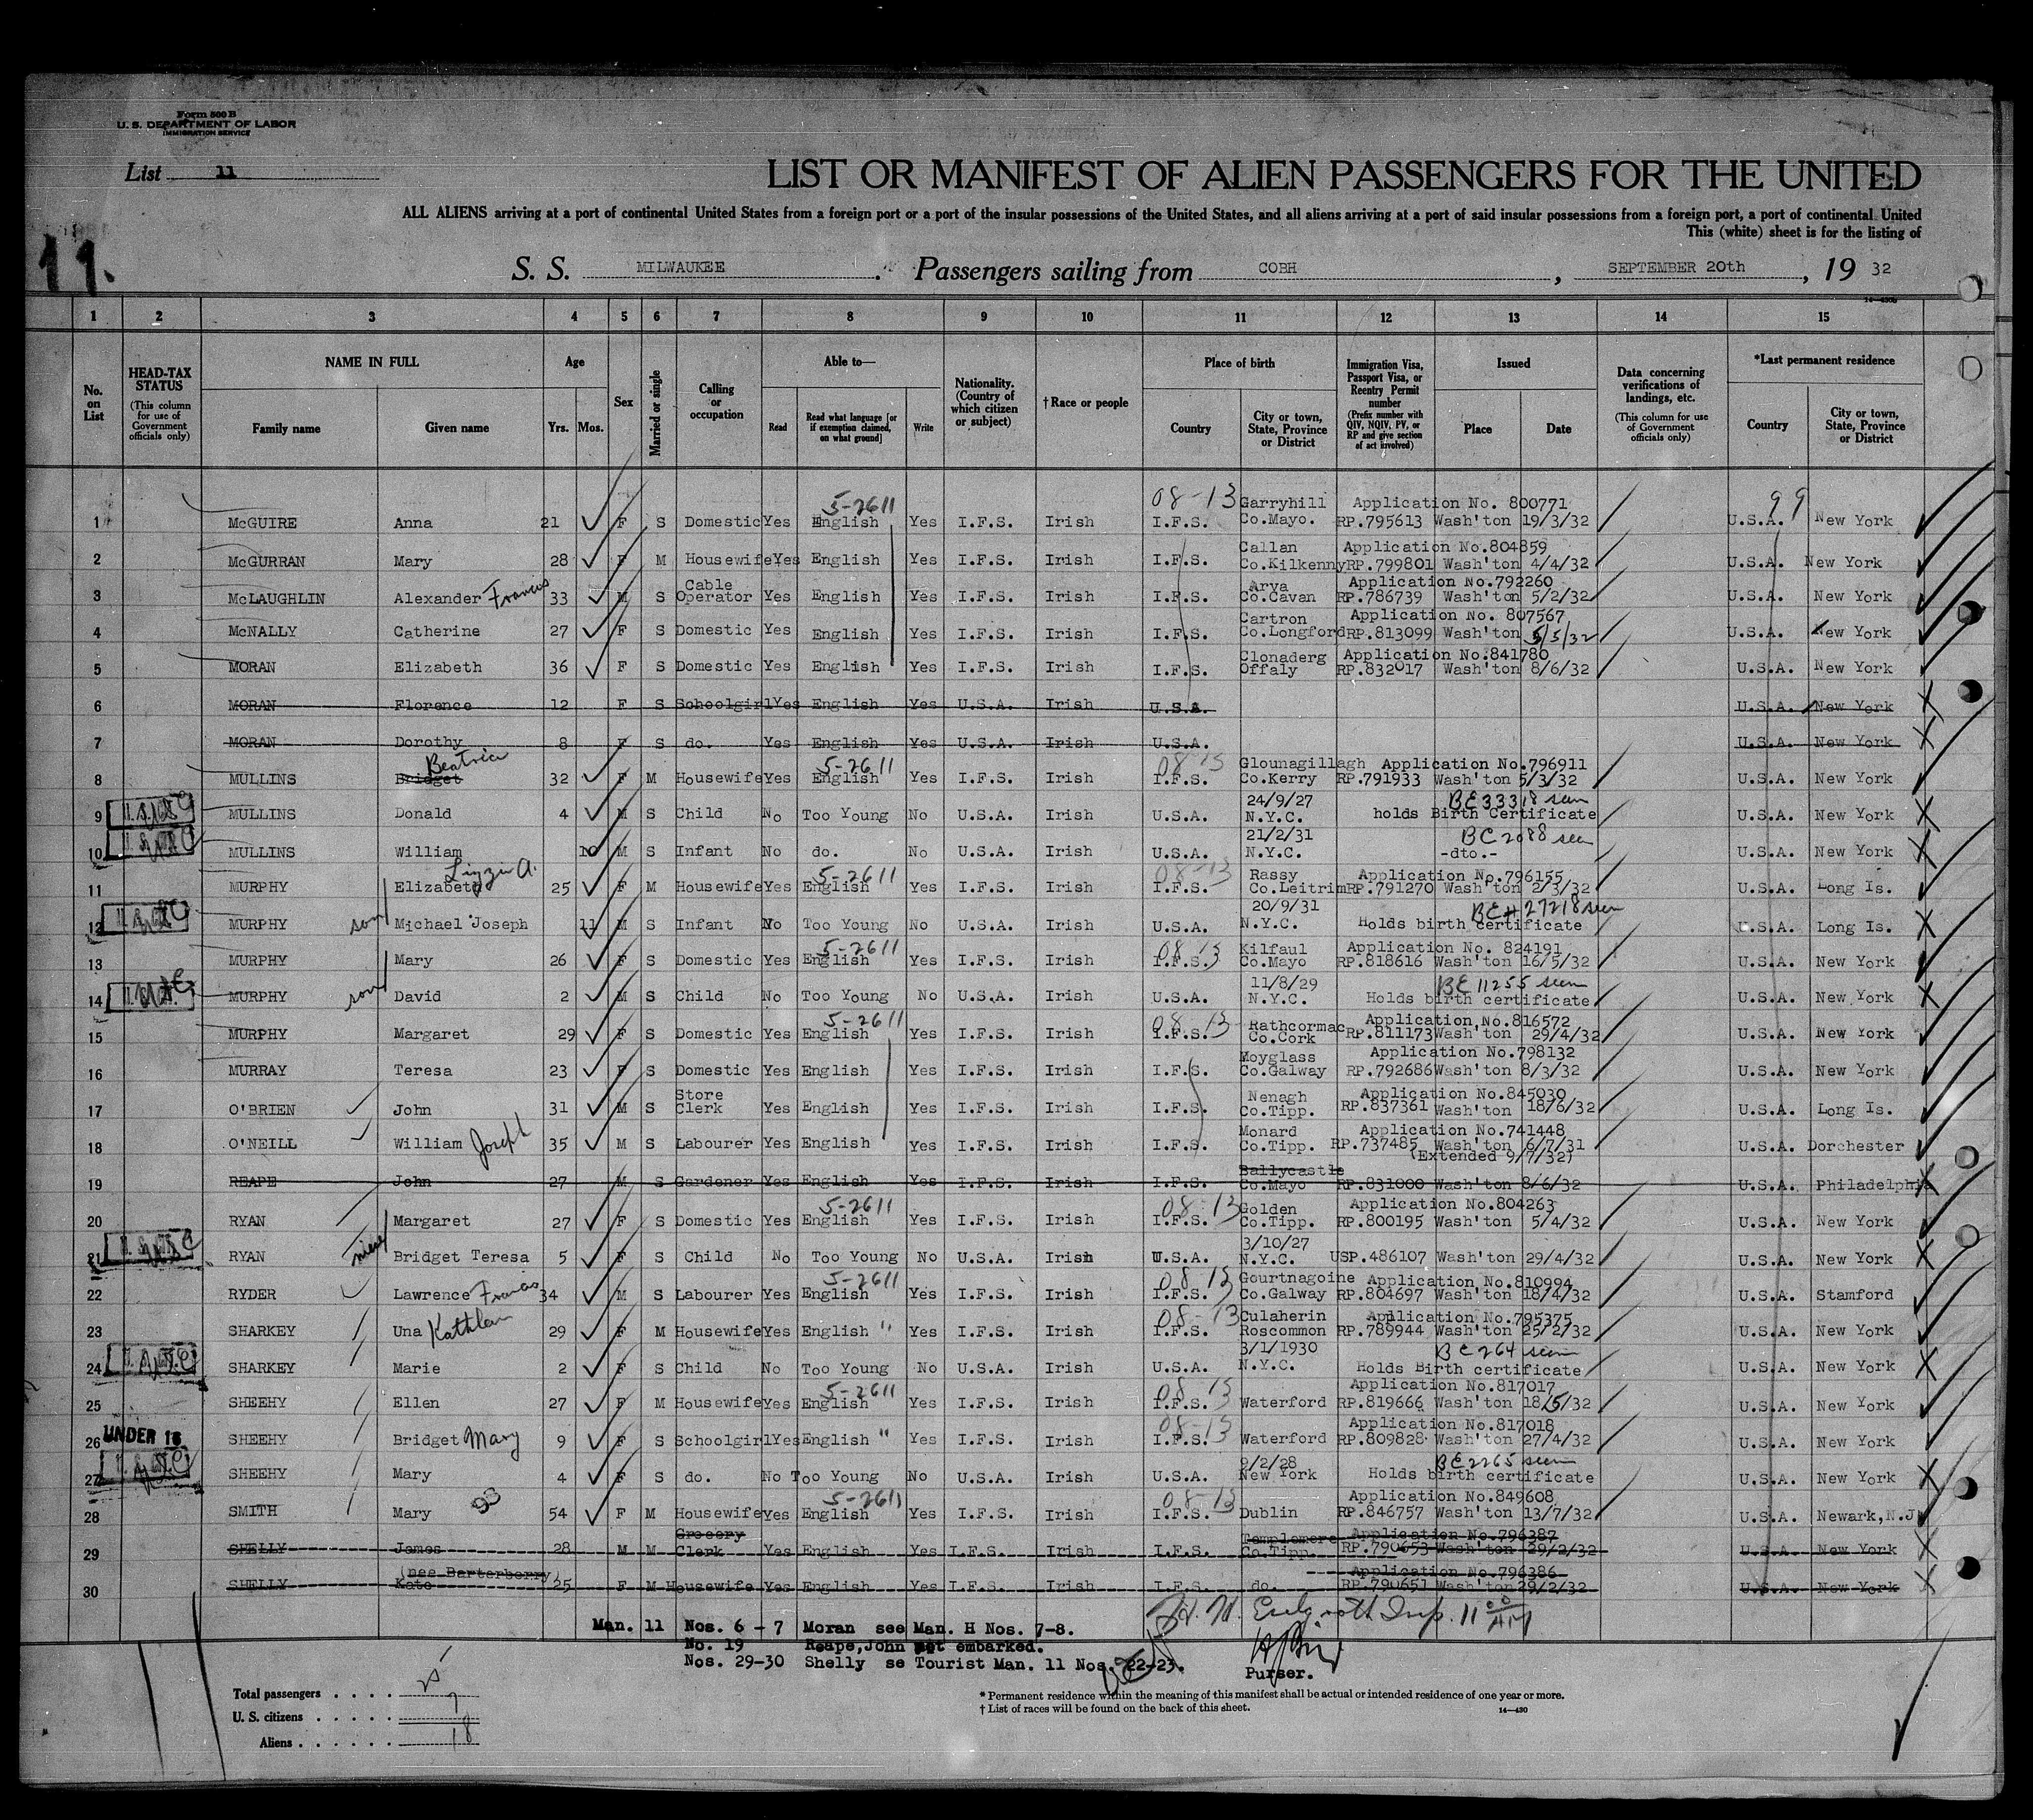 Form 500 B
U. S. DEPARTMENT OF LABOR
IMMIGRATION SERVICE
List 11
LIST OR MANIFEST OF ALIEN PASSENGERS FOR THE UNITED
ALL ALIENS arriving at a port of continental United States from a foreign port or a port of the insular possessions of the United States, and all aliens arriving at a port of said insular possessions from a foreign port, a port of continental United
This (white) sheet is for the listing of
11.
S. S. MILWAUKEE. Passengers sailing from COBH, SEPTEMBER 20th, 19 32
1 2 3 4 5 6 7 8 9 10 11 12 13 14 15
No. on List
HEAD-TAX STATUS (This column for use of Government officials only)
NAME IN FULL Family name Given name
Age Yrs. Mos.
Sex
Married or single
Calling or occupation
Able to— Read Read what language [or if exemption claimed, on what ground] Write
Nationality. (Country of which citizen or subject)
†Race or people
Place of birth Country City or town, State, Province or District
Immigration Visa, Passport Visa, or Reentry Permit number (Prefix number with QIV, NQIV, PV, or RP and give section of act involved)
Issued Place Date
Data concerning verifications of landings, etc. (This column for use of Government officials only)
*Last permanent residence Country City or town, State, Province or District
5-2611 08-13 Garryhill Application No. 800771 99
1 McGUIRE Anna 21 F S Domestic Yes English Yes I.F.S. Irish I.F.S. Co.Mayo. RP.795613 Wash'ton 19/3/32 U.S.A. New York
Callan Application No.804859
2 McGURRAN Mary 28 F M Housewife Yes English Yes I.F.S. Irish I.F.S. Co.Kilkenny RP.799801 Wash'ton 4/4/32 U.S.A. New York
Cable Arva Application No.792260
3 McLAUGHLIN Alexander Francis 33 M S Operator Yes English Yes I.F.S. Irish I.F.S. Co.Cavan RP.786739 Wash'ton 5/2/32 U.S.A. New York
Cartron Application No. 807567
4 McNALLY Catherine 27 F S Domestic Yes English Yes I.F.S. Irish I.F.S. Co.Longford RP.813099 Wash'ton 5/5/32 U.S.A. New York
Clonaderg Application No.841780
5 MORAN Elizabeth 36 F S Domestic Yes English Yes I.F.S. Irish I.F.S. Offaly RP.832017 Wash'ton 8/6/32 U.S.A. New York
6 MORAN Florence 12 F S Schoolgirl Yes English Yes U.S.A. Irish U.S.A. U.S.A. New York
7 MORAN Dorothy 8 F S do. Yes English Yes U.S.A. Irish U.S.A. U.S.A. New York
Beatrice 5-2611 08-13 Glounagillagh Application No.796911
8 MULLINS Bridget 32 F M Housewife Yes English Yes I.F.S. Irish I.F.S. Co.Kerry RP.791933 Wash'ton 5/3/32 U.S.A. New York
24/9/27 BC 33318 seen
9 MULLINS Donald 4 M S Child No Too Young No U.S.A. Irish U.S.A. N.Y.C. holds Birth Certificate U.S.A. New York
21/2/31 BC 2088 seen
10 MULLINS William 10 M S Infant No do. No U.S.A. Irish U.S.A. N.Y.C. -dto.- U.S.A. New York
Lizzie A. 5-2611 08-13 Rassy Application No.796155
11 MURPHY Elizabeth 25 F M Housewife Yes English Yes I.F.S. Irish I.F.S. Co.Leitrim RP.791270 Wash'ton 2/3/32 U.S.A. Long Is.
20/9/31 BC# 27218 seen
12 MURPHY son Michael Joseph 11 M S Infant No Too Young No U.S.A. Irish U.S.A. N.Y.C. Holds birth certificate U.S.A. Long Is.
5-2611 08-13 Kilfaul Application No. 824191
13 MURPHY Mary 26 F S Domestic Yes English Yes I.F.S. Irish I.F.S. Co.Mayo RP.818616 Wash'ton 16/5/32 U.S.A. New York
11/8/29 BC 11255 seen
14 MURPHY son David 2 M S Child No Too Young No U.S.A. Irish U.S.A. N.Y.C. Holds birth certificate U.S.A. New York
5-2611 08-13 Rathcormac Application No.816572
15 MURPHY Margaret 29 F S Domestic Yes English Yes I.F.S. Irish I.F.S. Co.Cork RP.811173 Wash'ton 29/4/32 U.S.A. New York
Moyglass Application No.798132
16 MURRAY Teresa 23 F S Domestic Yes English Yes I.F.S. Irish I.F.S. Co.Galway RP.792686 Wash'ton 8/3/32 U.S.A. New York
Store Nenagh Application No.845030
17 O'BRIEN John 31 M S Clerk Yes English Yes I.F.S. Irish I.F.S. Co.Tipp. RP.837361 Wash'ton 18/6/32 U.S.A. Long Is.
Monard Application No.741448
18 O'NEILL William Joseph 35 M S Labourer Yes English Yes I.F.S. Irish I.F.S. Co.Tipp. RP.737485 Wash'ton 6/7/31 U.S.A. Dorchester
(Extended 9/7/32)
Ballycastle
19 REAPE John 27 M S Gardener Yes English Yes I.F.S. Irish I.F.S. Co.Mayo RP.831000 Wash'ton 8/6/32 U.S.A. Philadelphia
5-2611 08-13 Golden Application No.804263
20 RYAN Margaret 27 F S Domestic Yes English Yes I.F.S. Irish I.F.S. Co.Tipp. RP.800195 Wash'ton 5/4/32 U.S.A. New York
3/10/27
21 RYAN niece Bridget Teresa 5 F S Child No Too Young No U.S.A. Irish U.S.A. N.Y.C. USP.486107 Wash'ton 29/4/32 U.S.A. New York
5-2611 08-13 Gourtnagoine Application No.810994
22 RYDER Lawrence Francis 34 M S Labourer Yes English Yes I.F.S. Irish I.F.S. Co.Galway RP.804697 Wash'ton 18/4/32 U.S.A. Stamford
08-13 Culaherin Application No.795375
23 SHARKEY Una Kathleen 29 F M Housewife Yes English " Yes I.F.S. Irish I.F.S. Roscommon RP.789944 Wash'ton 25/2/32 U.S.A. New York
3/1/1930 BC 264 seen
24 SHARKEY Marie 2 F S Child No Too Young No U.S.A. Irish U.S.A. N.Y.C. Holds Birth certificate U.S.A. New York
5-2611 08-13 Application No.817017
25 SHEEHY Ellen 27 F M Housewife Yes English Yes I.F.S. Irish I.F.S. Waterford RP.819666 Wash'ton 18/5/32 U.S.A. New York
UNDER 16 08-13 Application No.817018
26 SHEEHY Bridget Mary 9 F S Schoolgirl Yes English " Yes I.F.S. Irish I.F.S. Waterford RP.809828 Wash'ton 27/4/32 U.S.A. New York
9/2/28 BC 2265 seen
27 SHEEHY Mary 4 F S do. No Too Young No U.S.A. Irish U.S.A. New York Holds birth certificate U.S.A. New York
5-2611 08-13 Application No.849608
28 SMITH Mary 54 F M Housewife Yes English Yes I.F.S. Irish I.F.S. Dublin RP.846757 Wash'ton 13/7/32 U.S.A. Newark,N.J
Grocery Templemore Application No.796387
29 SHELLY James 28 M M Clerk Yes English Yes I.F.S. Irish I.F.S. Co.Tipp. RP.790653 Wash'ton 29/2/32 U.S.A. New York
(nee Barterberry) Application No.796386
30 SHELLY Kate 25 F M Housewife Yes English Yes I.F.S. Irish I.F.S. do. RP.790651 Wash'ton 29/2/32 U.S.A. New York
Insp. 11 00 AM
Man. 11 Nos. 6 - 7 Moran see Man. H Nos. 7-8.
No. 19 Reape,John not embarked.
Nos. 29-30 Shelly se Tourist Man. 11 Nos. 22-23.
Purser.
Total passengers . . . . 25
U. S. citizens . . . . . 7
Aliens . . . . . . 18
* Permanent residence within the meaning of this manifest shall be actual or intended residence of one year or more.
† List of races will be found on the back of this sheet.
14—430